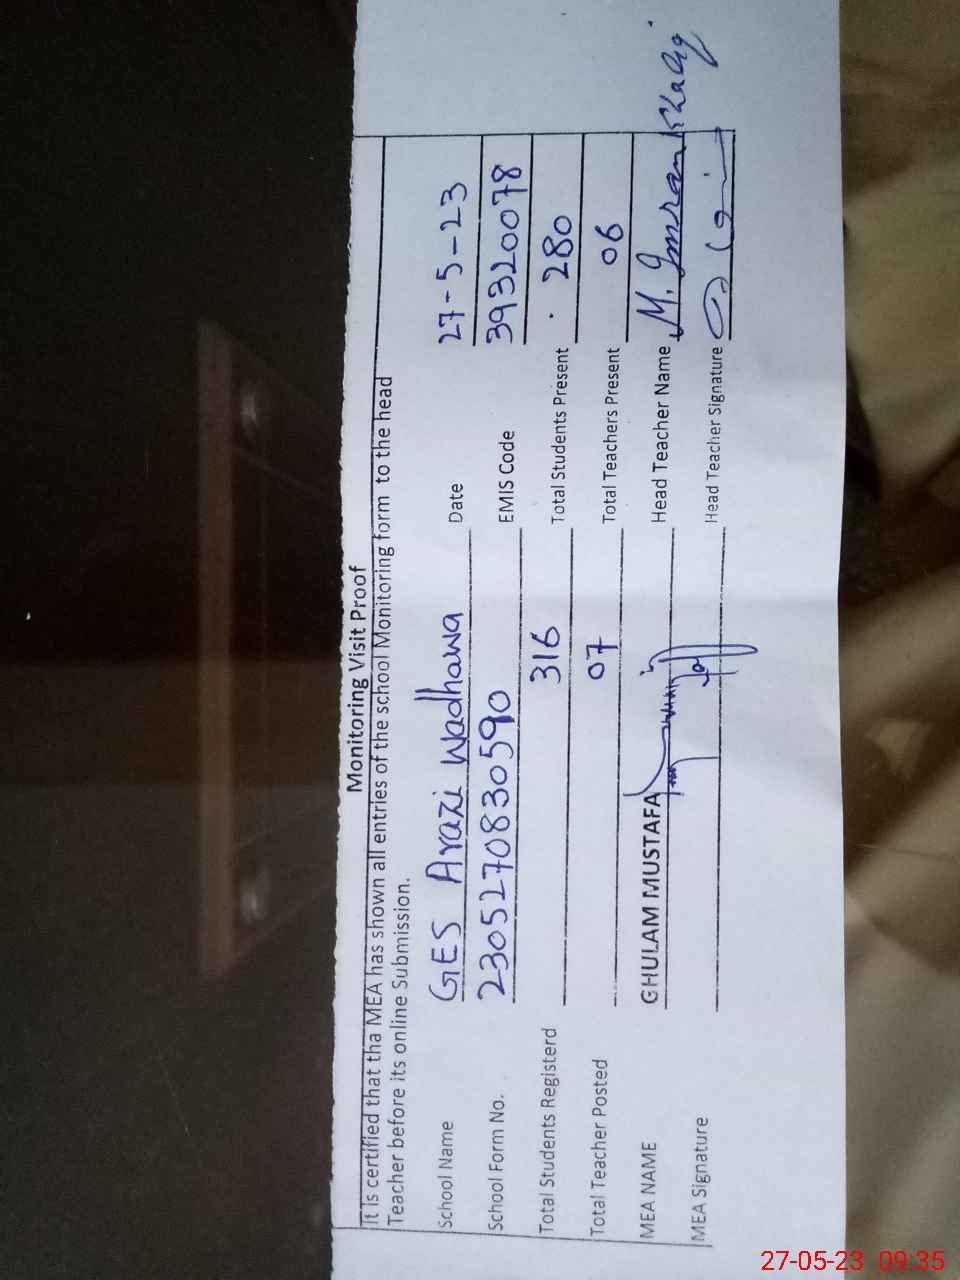 Monitoring Visit Proof
It is certified that tha MEA has shown all entries of the school Monitoring form to the head
Teacher before its online Submission.
School Name GES Arazi Wadhawa Date 27-5-23
School Form No. 2305270830590 EMIS Code 39320078
Total Students Registerd 316 Total Students Present 280
Total Teacher Posted 07 Total Teachers Present 06
MEA NAME GHULAM MUSTAFA Head Teacher Name M. Imran Khaliq
MEA Signature Head Teacher Signature
27-05-23 09:35